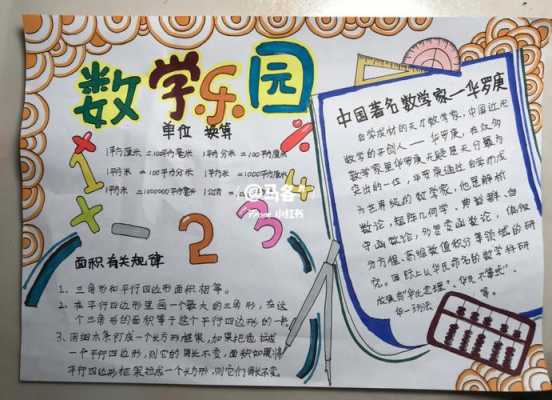 数学乐园
单位 换算
1平方厘米=100平方毫米 1平方分米=100平方厘米
1平方米=100平方分米 1平方米=10000平方厘米
1平方米=1000000平方毫米 1公顷
1 + ÷ 4 × - 2 3
@马客
小红书
面积有关规律
1、三角形和平行四边形面积相等。
2、在平行四边形里画一个最大的三角形，在这
个三角形的面积等于这个平行四边形的一半。
3、用细木条钉成一个长方形框架，如果把它拉成
一个平行四边形，则它的周长不变，面积如果将
平行四边形框架拉成一个长方形，则它们周长不变。
中国著名数学家—华罗庚
自学成材的天才数学家，中国近代
数学的开创人——华罗庚，在众多
数学家里华罗庚无疑是天分最为
突出的一位，华罗庚通过自学而成
为世界级的数学家，他是解析
数论，矩阵几何学，典型群，自
守函数论，多复变函数论，偏微
分方程，高维数值积分等领域的研
究，国际上以华氏命名的数学科研
成果有"华氏定理"、"华氏不等式"、
华—王方法 等。